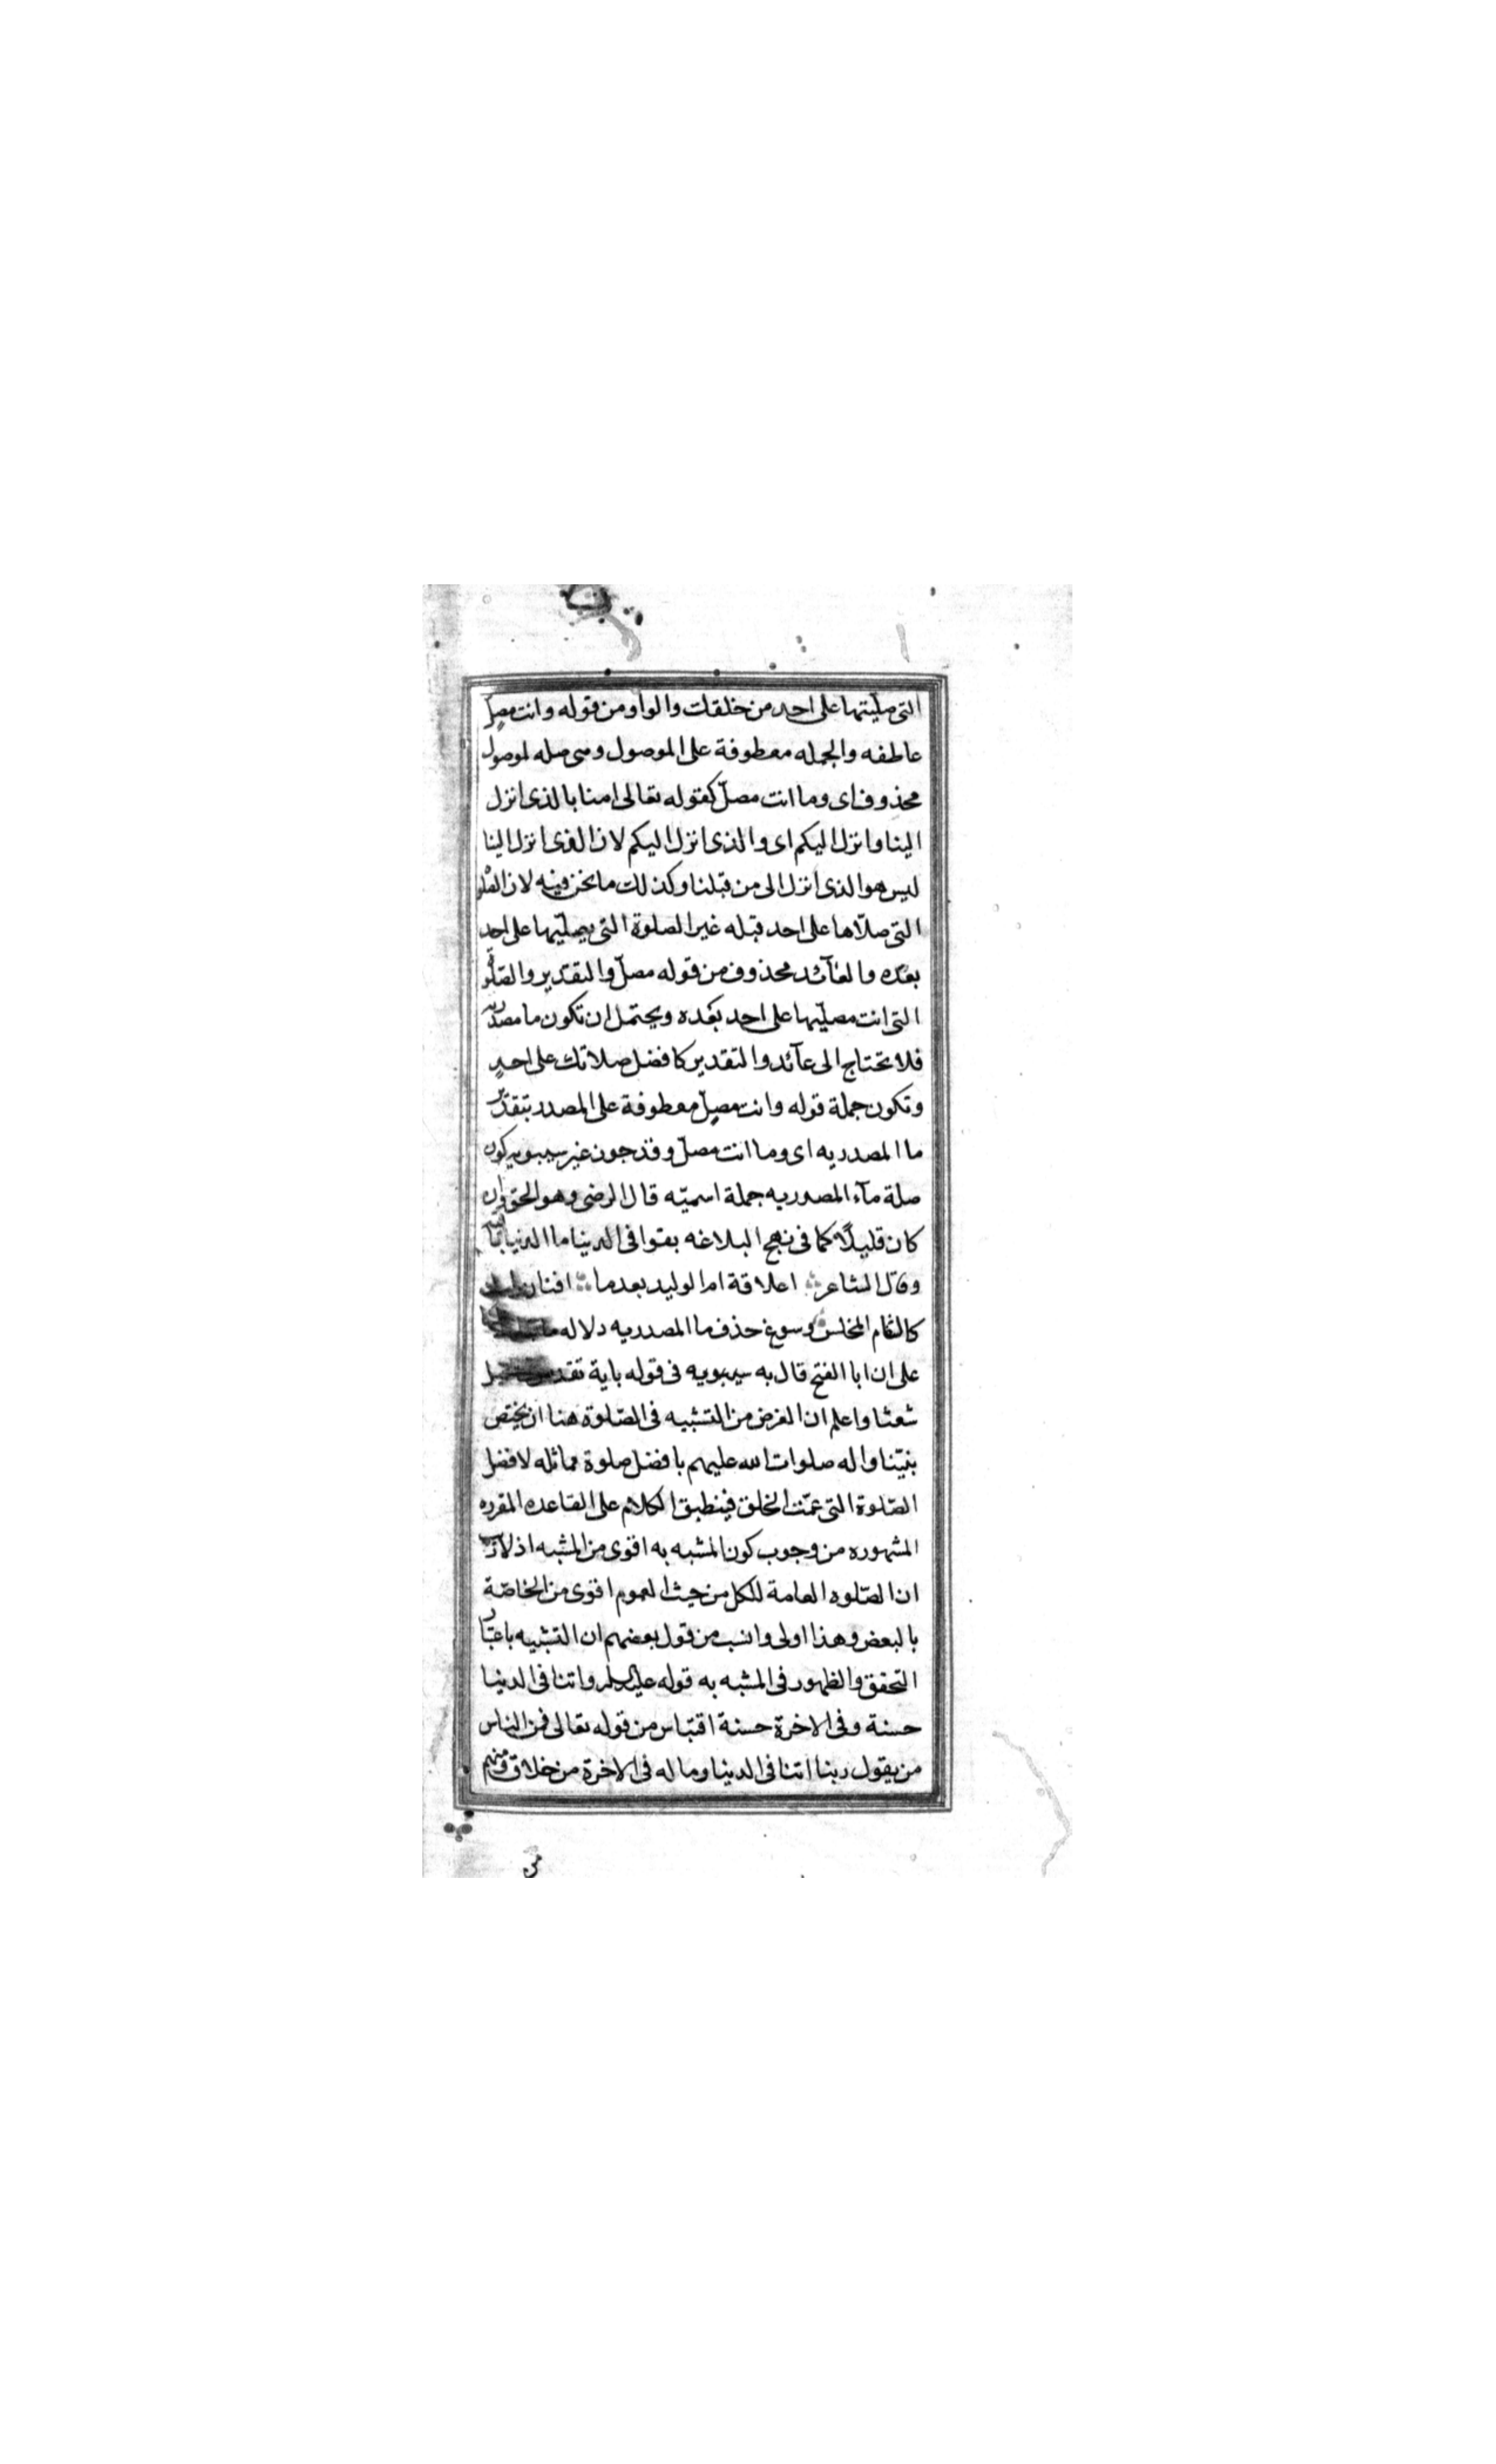 التى صليتها على احد من خلقك والواو من قوله وانت مصل
عاطفه والجمله معطوفة على الموصول وهى صله لموصول
محذوف اى وما انت مصلّ كقوله تعالى امنا بالذى انزل
الينا وانزل اليكم اى والذى انزل اليكم لان الذى انزل الينا
ليس هو الذى انزل الى من قبلنا وكذلك ما نحن فيه لان الصلوة
التى صلّاها على احد قبله غير الصلوة التى يصلّيها على احد
بعده والعآئد محذوف من قوله مصلّ والتقدير والصّلوة
التى انت مصلّيها على احد بعده ويحتمل ان تكون ما مصدريه
فلا تحتاج الى عآئد والتقدير كافضل صلاتك على احدٍ
وتكون جملة قوله وانت مصلٍ معطوفة على المصدر بتقدير
ما المصدريه اى وما انت مصلّ وقد جوز غير سيبويه كون
صلة مآء المصدريه جملة اسميّه قال الرضى وهو الحق وان
كان قليلًا كما فى نهج البلاغه بقوا فى الدينا ما الدنيا باقية
وقال الشاعر اعلاقة ام الوليد بعد ما افنان
كالثغام المخلس وسوغ حذف ما المصدريه دلاله ما
على ان ابا الفتح قال به سيبويه فى قوله باية
شعثا واعلم ان الغرض من التشبيه فى الصّلوة هنا ان يختص
بنبيّنا واله صلوات الله عليهم بافضل صلوة مماثله لافضل
الصّلوة التى عمّت الخلق فينطبق الكلام على القاعده المقرره
المشهوره من وجوب كون المشبه به اقوى من المشبه اذ لا ريب
ان الصّلوه العامة للكل من حيث العموم اقوى من الخاصّة
بالبعض وهذا اولى وانسب من قول بعضهم ان التشبيه باعتبار
التحقق والظهور فى المشبه به قوله عليه السلم واتنا فى الدنيا
حسنة وفى الاخرة حسنة اقتباس من قوله تعالى فمن الناس
من يقول ربنا اتنا فى الدينا وما له فى الاخرة من خلاق ومنهم
من